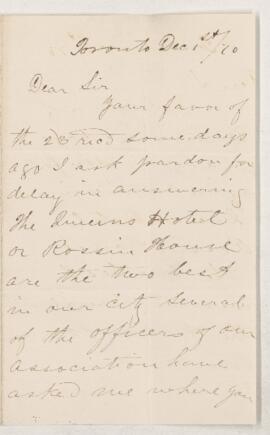 Toronto Dec 1st/70
Dear Sir
Your favor of
the 23 recd some days
ago I ask pardon for
delay in answering
The Queens Hotel
or Rossin House
are the two best
in our city several
of the officers of our
association have
asked me where you